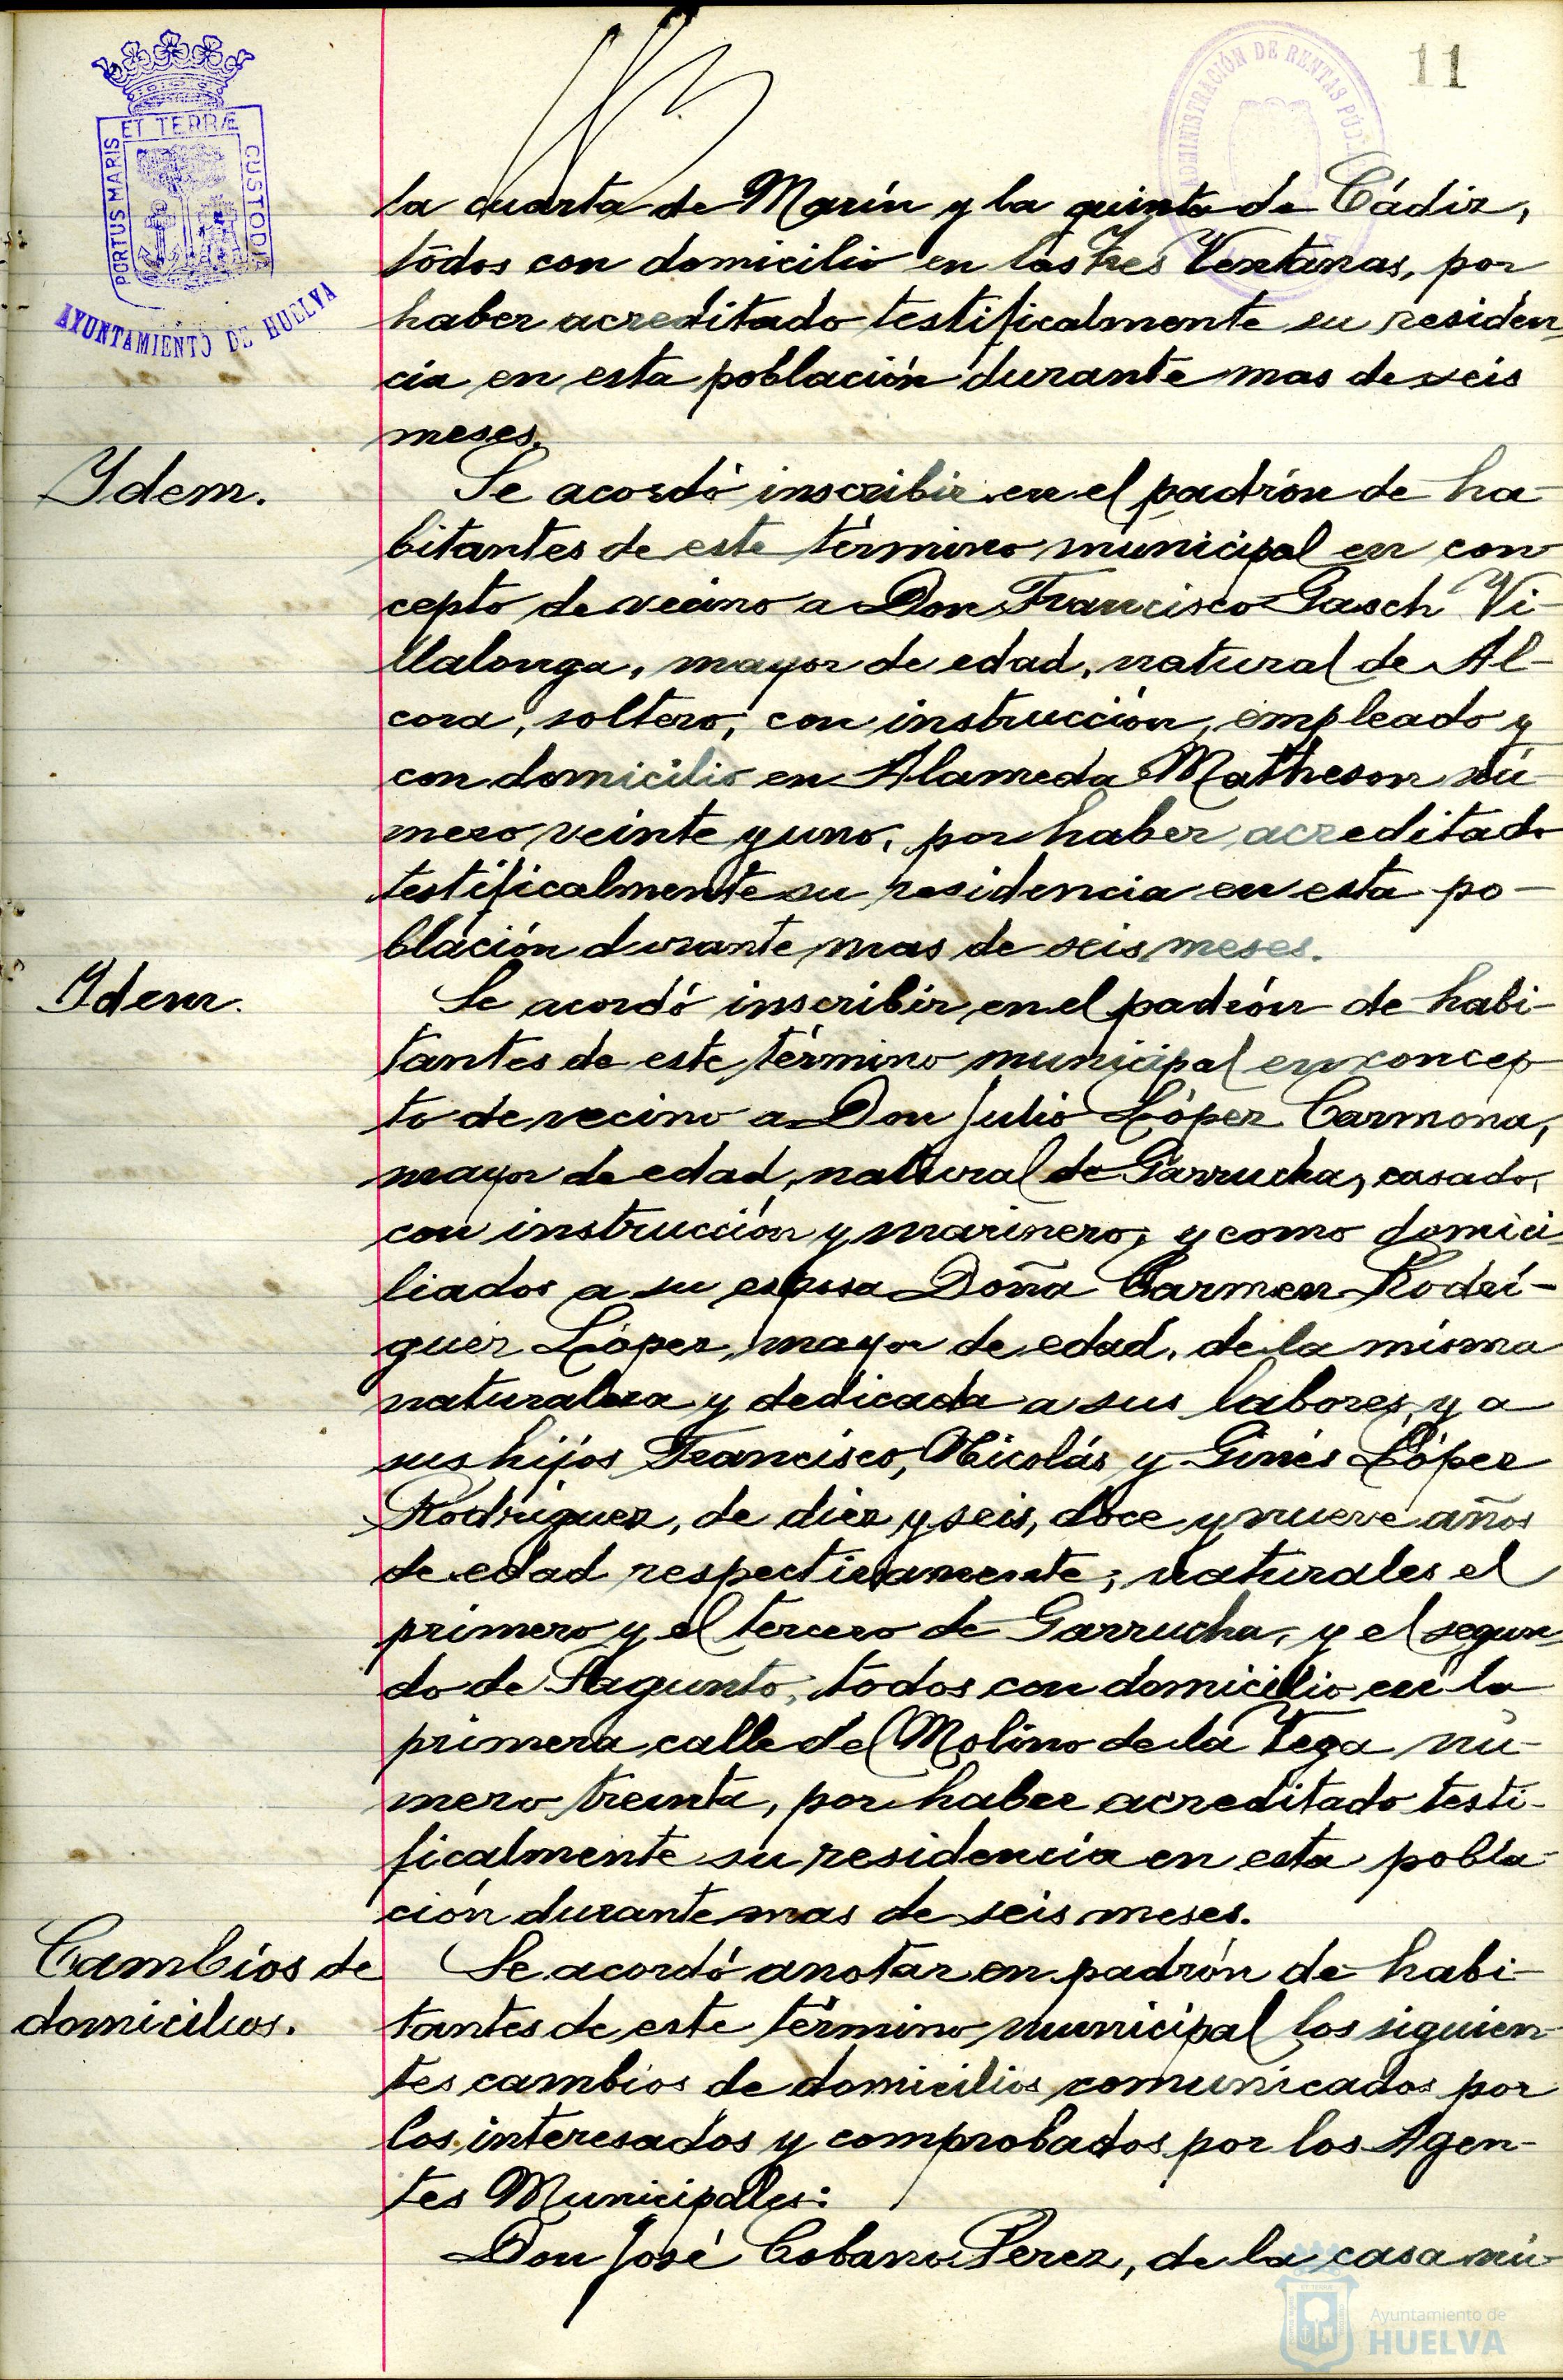 11
ET TERRÆ
PORTUS MARIS
CUSTODIA
AYUNTAMIENTO DE HUELVA
ADMINISTRACIÓN DE RENTAS PÚBL
la cuarta de Marín y la quinta de Cádiz,
todos con domicilio en las Tres Ventanas, por
haber acreditado testificalmente su residen
cia en esta población durante mas de seis
meses.
Ydem.
Se acordó inscribir en el padrón de ha-
bitantes de este término municipal en con
cepto de vecino a Don Francisco Gasch Vi-
llalonga, mayor de edad, natural de Al-
cora, soltero, con instrucción, empleado y
con domicilio en Alameda Matheson nú
mero veinte y uno, por haber acreditado
testificalmente su residencia en esta po-
blación durante mas de seis meses.
Ydem.
Se acordó inscribir en el padrón de habi-
tantes de este término municipal en concep
to de vecino a Don Julio López Carmona,
mayor de edad, natural de Garrucha, casado,
con instrucción y marinero, y como domici
liados a su esposa Doña Carmen Rodrí-
guez López, mayor de edad, de la misma
naturaleza y dedicada a sus labores, y a
sus hijos Francisco, Nicolás y Ginés López
Rodríguez, de diez y seis, doce y nueve años
de edad respectivamente, naturales el
primero y el tercero de Garrucha, y el segun
do de Sagunto, todos con domicilio en la
primera calle del Molino de la Vega nú-
mero treinta, por haber acreditado testi-
ficalmente su residencia en esta pobla-
ción durante mas de seis meses.
Cambios de
domicilios.
Se acordó anotar en padrón de habi-
tantes de este término municipal los siguien
tes cambios de domicilios comunicados por
los interesados y comprobados por los Agen-
tes Municipales:
Don José Cobano Perez, de la casa nú-
Ayuntamiento de
HUELVA